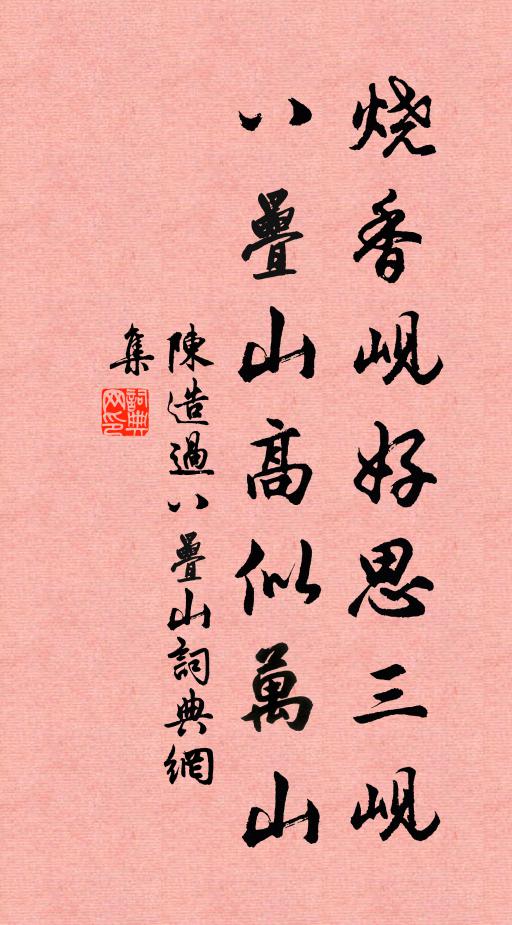 烧香岘好思三岘
八疊山高似萬山
陳造過八疊山詞典網
集
詞典網印